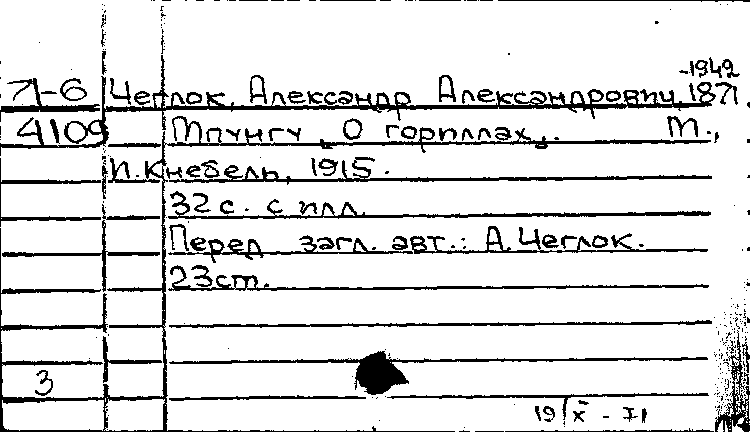 -1942
71-6 Чеглок, Александр Александрович, 1871.
4109 Мпунгу „О гориллах„. М.,
И. Кнебель, 1915.
32 с. с илл.
Перед загл. авт.: А. Чеглок.
23 см.
3
19 X - 71